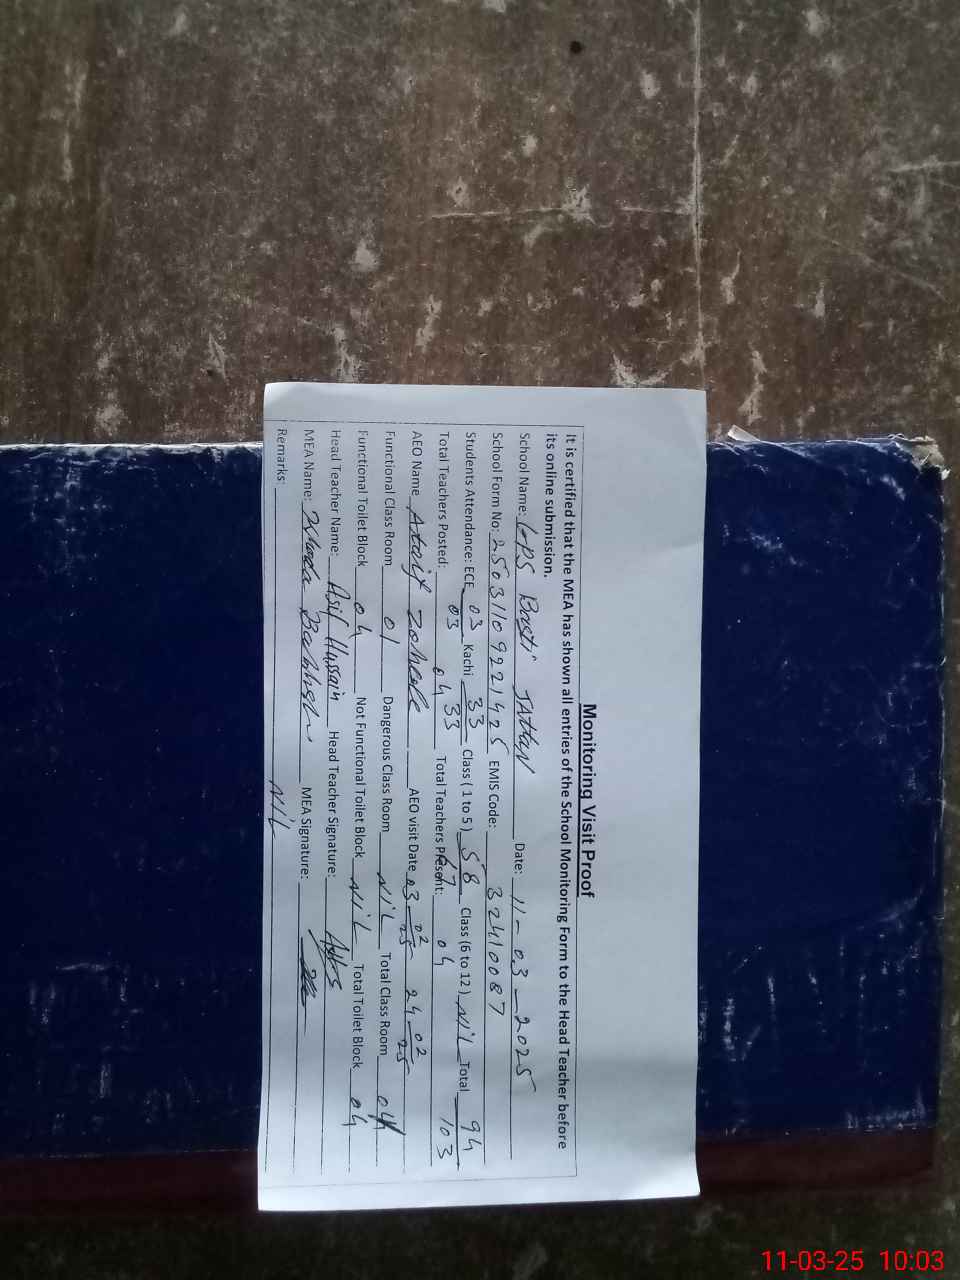 Monitoring Visit Proof
It is certified that the MEA has shown all entries of the School Monitoring Form to the Head Teacher before
its online submission.
School Name: GPS Basti JAttan Date: 11-03-2025
School Form No: 25031109221425 EMIS Code: 32410087
Students Attendance: ECE 03 Kachi 33 Class (1 to 5) 58 Class (6 to 12) NiL Total 94
03 33 67 103
Total Teachers Posted: 04 Total Teachers Present: 04
AEO Name AEO visit Date 03-02-25 24-02-25
Functional Class Room 01 Dangerous Class Room NiL Total Class Room 04
Functional Toilet Block 04 Not Functional Toilet Block NiL Total Toilet Block 04
Head Teacher Name: Asif Hussain Head Teacher Signature:
MEA Name: Khuda Bakhsh MEA Signature:
Remarks: NiL
11-03-25 10:03